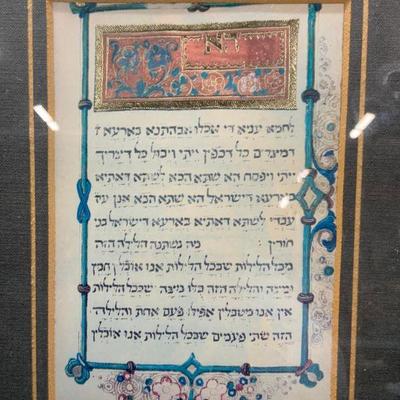 הא
לחמא עניא די אכלו אבהתנא בארעא ד
דמיצרים כל דכפין ייתי ויכול כל דיצריך
ייתי ויפסח הא שתא הכא לשתא דאתיא
בארעא דישראל הא שתא הכא אנן עו
עבדי לשתא דאתיא בארעא דישראל בני
חורין׃ מה נשתנה הלילה הזה
מכל הלילות שבכל הלילות אנו אוכלין חמץ
ומיצה והלילה הזה כלו מיצה שבכל הלילות
אין אנו מטבלין אפילו פעם אחת והלילה
הזה שתי פעמים שבכל הלילות אנו אוכלין